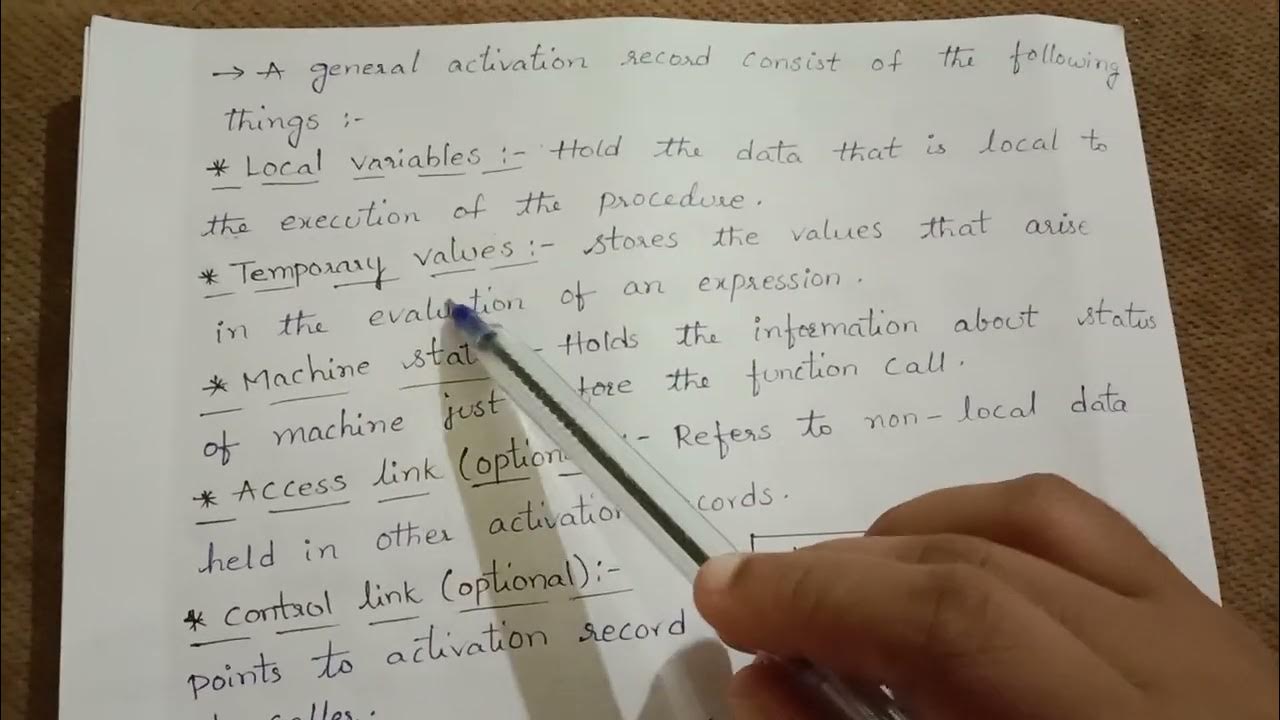 → A general activation record consist of the following
things :-
* Local variables :- Hold the data that is local to
the execution of the procedure.
* Temporary values :- stores the values that arise
in the evaluation of an expression.
* Machine - Holds the information about status
of machine just the function call.
* Access link :- Refers to non-local data
held in other
* Control link (optional) :-
points to activation record